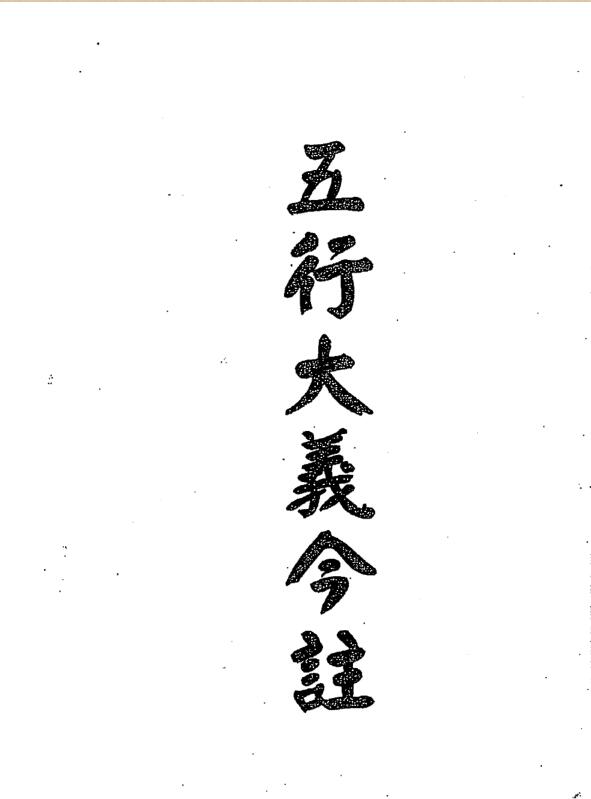 五行大義今註